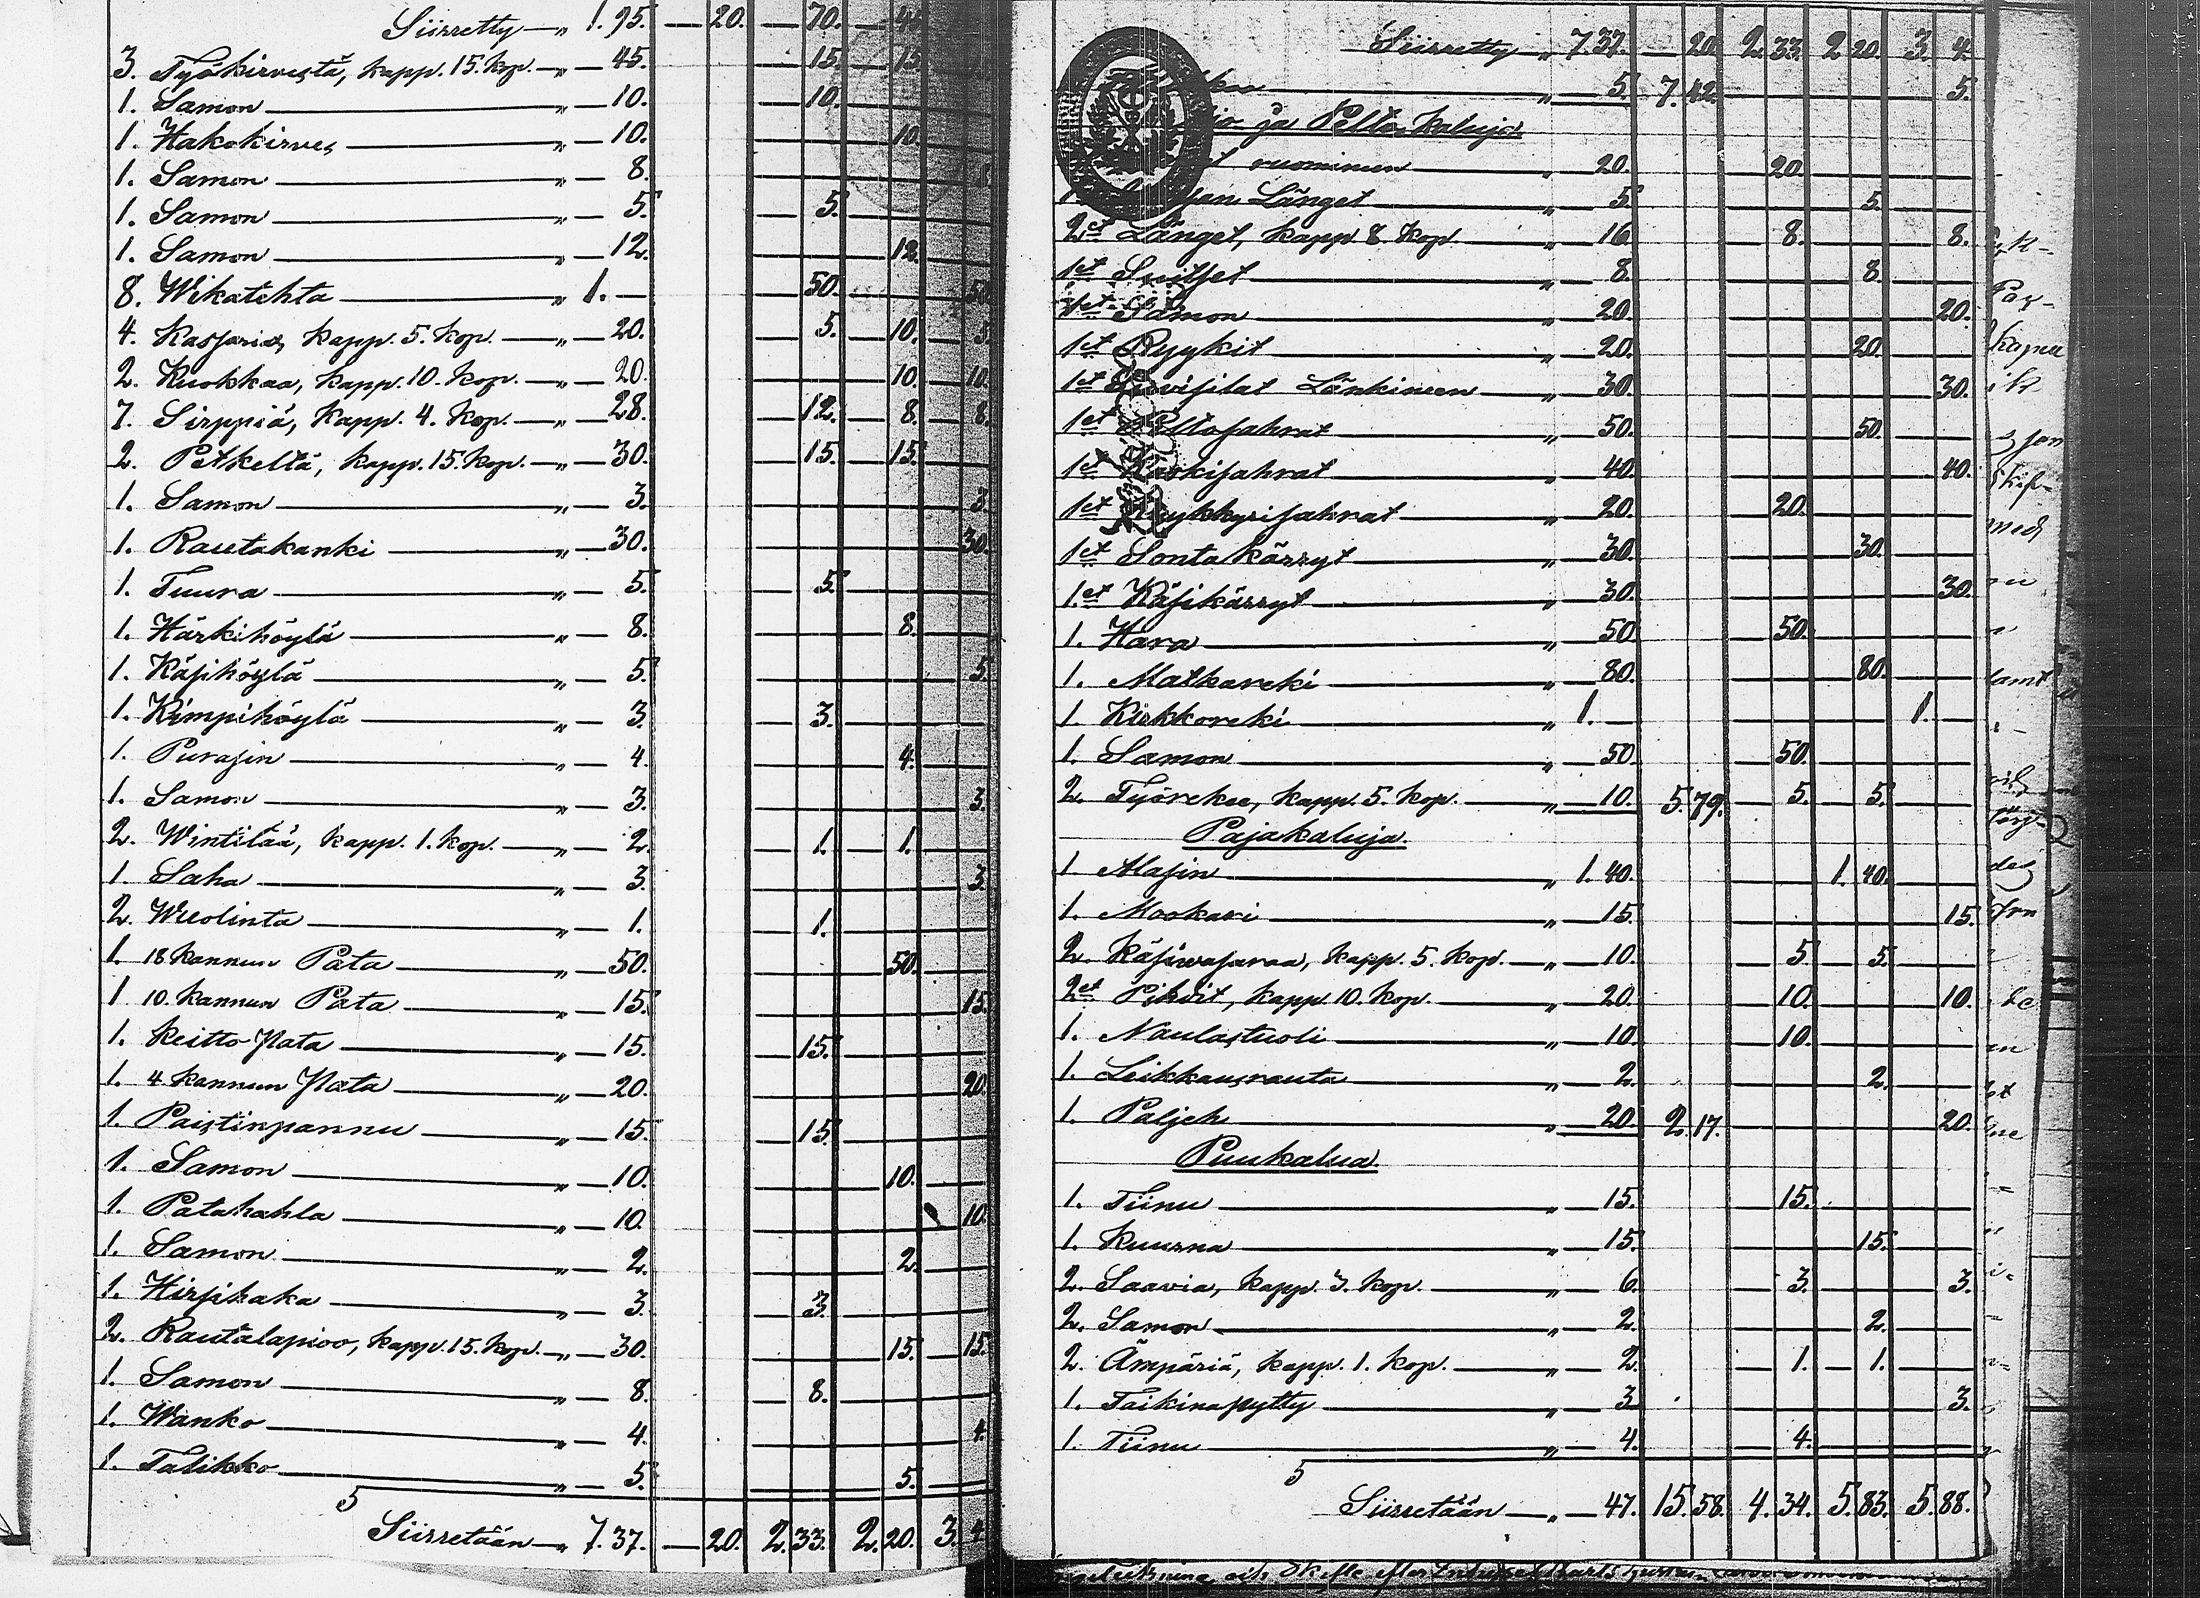 Siirretty — „ 1. 95. — 20. — 70. — 4.
3. Työkirvestä, kapp. 15. kop. — „ — 45. — 15. — 15.
1. Samon — „ — 10. — 10.
1. Hakokirves — „ — 10. — 10.
1. Samon — „ — 8.
1. Samon — „ — 5. — 5.
1. Samon — „ — 12. — 12.
8. Wikatehta — „ 1. — — 50. — 50.
4. kapp. 5. kop. — „ — 20. — 5. — 10. — 5.
2. Kuokkaa, kapp. 10. kop. — „ — 20. — 10. — 10.
7. Sirppiä, kapp. 4. kop. — „ — 28. — 12. — 8. — 8.
2. Petkeltä, kapp. 15. kop. — „ — 30. — 15. — 15.
1. Samon — „ — 3. — 3.
1. Rautakanki — „ — 30. — 30.
1. Tuura — „ — 5. — 5.
1. Härkihöylä — „ — 8. — 8.
1. Käsihöylä — „ — 5. — 5.
1. Kimpihöylä — „ — 3. — 3.
1. Purasin — „ — 4. — 4.
1. Samon — „ — 3. — 3.
2. Wintilää, kapp. 1. kop. — „ — 2. — 1. — 1.
1. Saha — „ — 3. — 3.
2. Wuolinta — „ — 1. — 1.
1. 18 kannun Pata — „ — 50. — 50.
1 10. kannun Pata — „ — 15. — 15.
1. Keitto Pata — „ — 15. — 15.
1. 4 kannun Pata — „ — 20. — 20.
1. Paistinpannu — „ — 15. — 15.
1. Samon — „ — 10. — 10.
1. Patahahla — „ — 10. — 10.
1. Samon — „ — 2. — 2.
1. Hirsihaka — „ — 3. — 3.
2. Rautalapioo, kapp. 15. kop. — „ — 30. — 15. — 15.
1. Samon — „ — 8. — 8.
1. Wanko — „ — 4. — 4.
1. Talikko — „ — 5. — 5.
5
Siirretään — „ 7. 37. — 20. 2. 33. 2. 20. 3. 4.
Siirretty „ 7. 37. — 20. 2. 33. 2. 20. 3. 4.
„ — 5. 7. 42. — 5.
ja Pelto kaluja.
„ — 20. — 20.
Länget „ — 5. — 5.
2et Länget, kapp. 8. kop. „ — 16. — 8. — 8.
1et Suitset „ — 8. — 8.
1et Samon „ — 20. — 20.
1et Ryykit „ — 20. — 20.
1et Länkineen „ — 30. — 30.
1et Peltosahrat „ — 50. — 50.
1et Kaskisahrat „ — 40. — 40.
1et „ — 20. — 20.
1et Sontakärryt „ — 30. — 30.
1.et Käsikärryt „ — 30. — 30.
1. Hara „ — 50. — 50.
1. Matkareki „ — 80. — 80.
1. Kirkkoreki „ 1. — 1. —
1. Samon „ — 50. — 50.
2. Työrekee, kapp. 5. kop. „ — 10. 5. 79. — 5. — 5.
Pajakaluja.
1. Alasin „ 1. 40. 1. 40.
1. Mookari „ — 15. — 15.
2. Käsiwasaraa, kapp. 5. kop. „ — 10. — 5. — 5.
2et Pihdit, kapp. 10. kop. „ — 20. — 10. — 10.
1. Naulastuoli „ — 10. — 10.
1. Leikkausrauta „ — 2. — 2.
1. Paljeh „ — 20. 2. 17. — 20.
Puukalua.
1. Tiinu „ — 15. — 15.
1. Kuurna „ — 15. — 15.
2. Saavia, kapp. 3. kop. „ — 6. — 3. — 3.
2. Samon „ — 2. — 2.
2. Ämpäriä, kapp. 1. kop. „ — 2. — 1. — 1.
1. Taikinapytty „ — 3. — 3.
1. Tiinu „ — 4. — 4.
5
Siirretään — „ — 47. 15. 58. 4. 34. 5. 83. 5. 88.